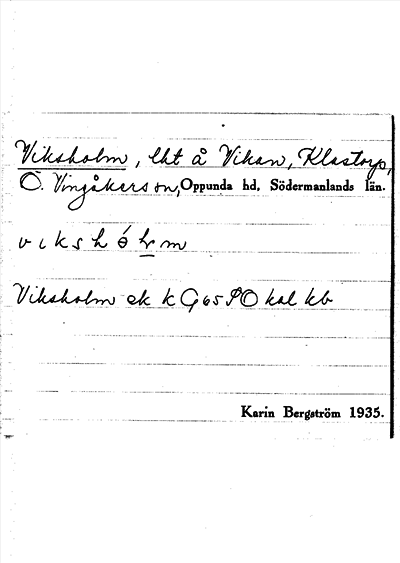 Viksholm, lht å Vikan, Klastorp,
Ö. Vingåkers sn, Oppunda hd, Södermanlands län.
Viksholm ek k G65 PO kal kb
Karin Bergström 1935.